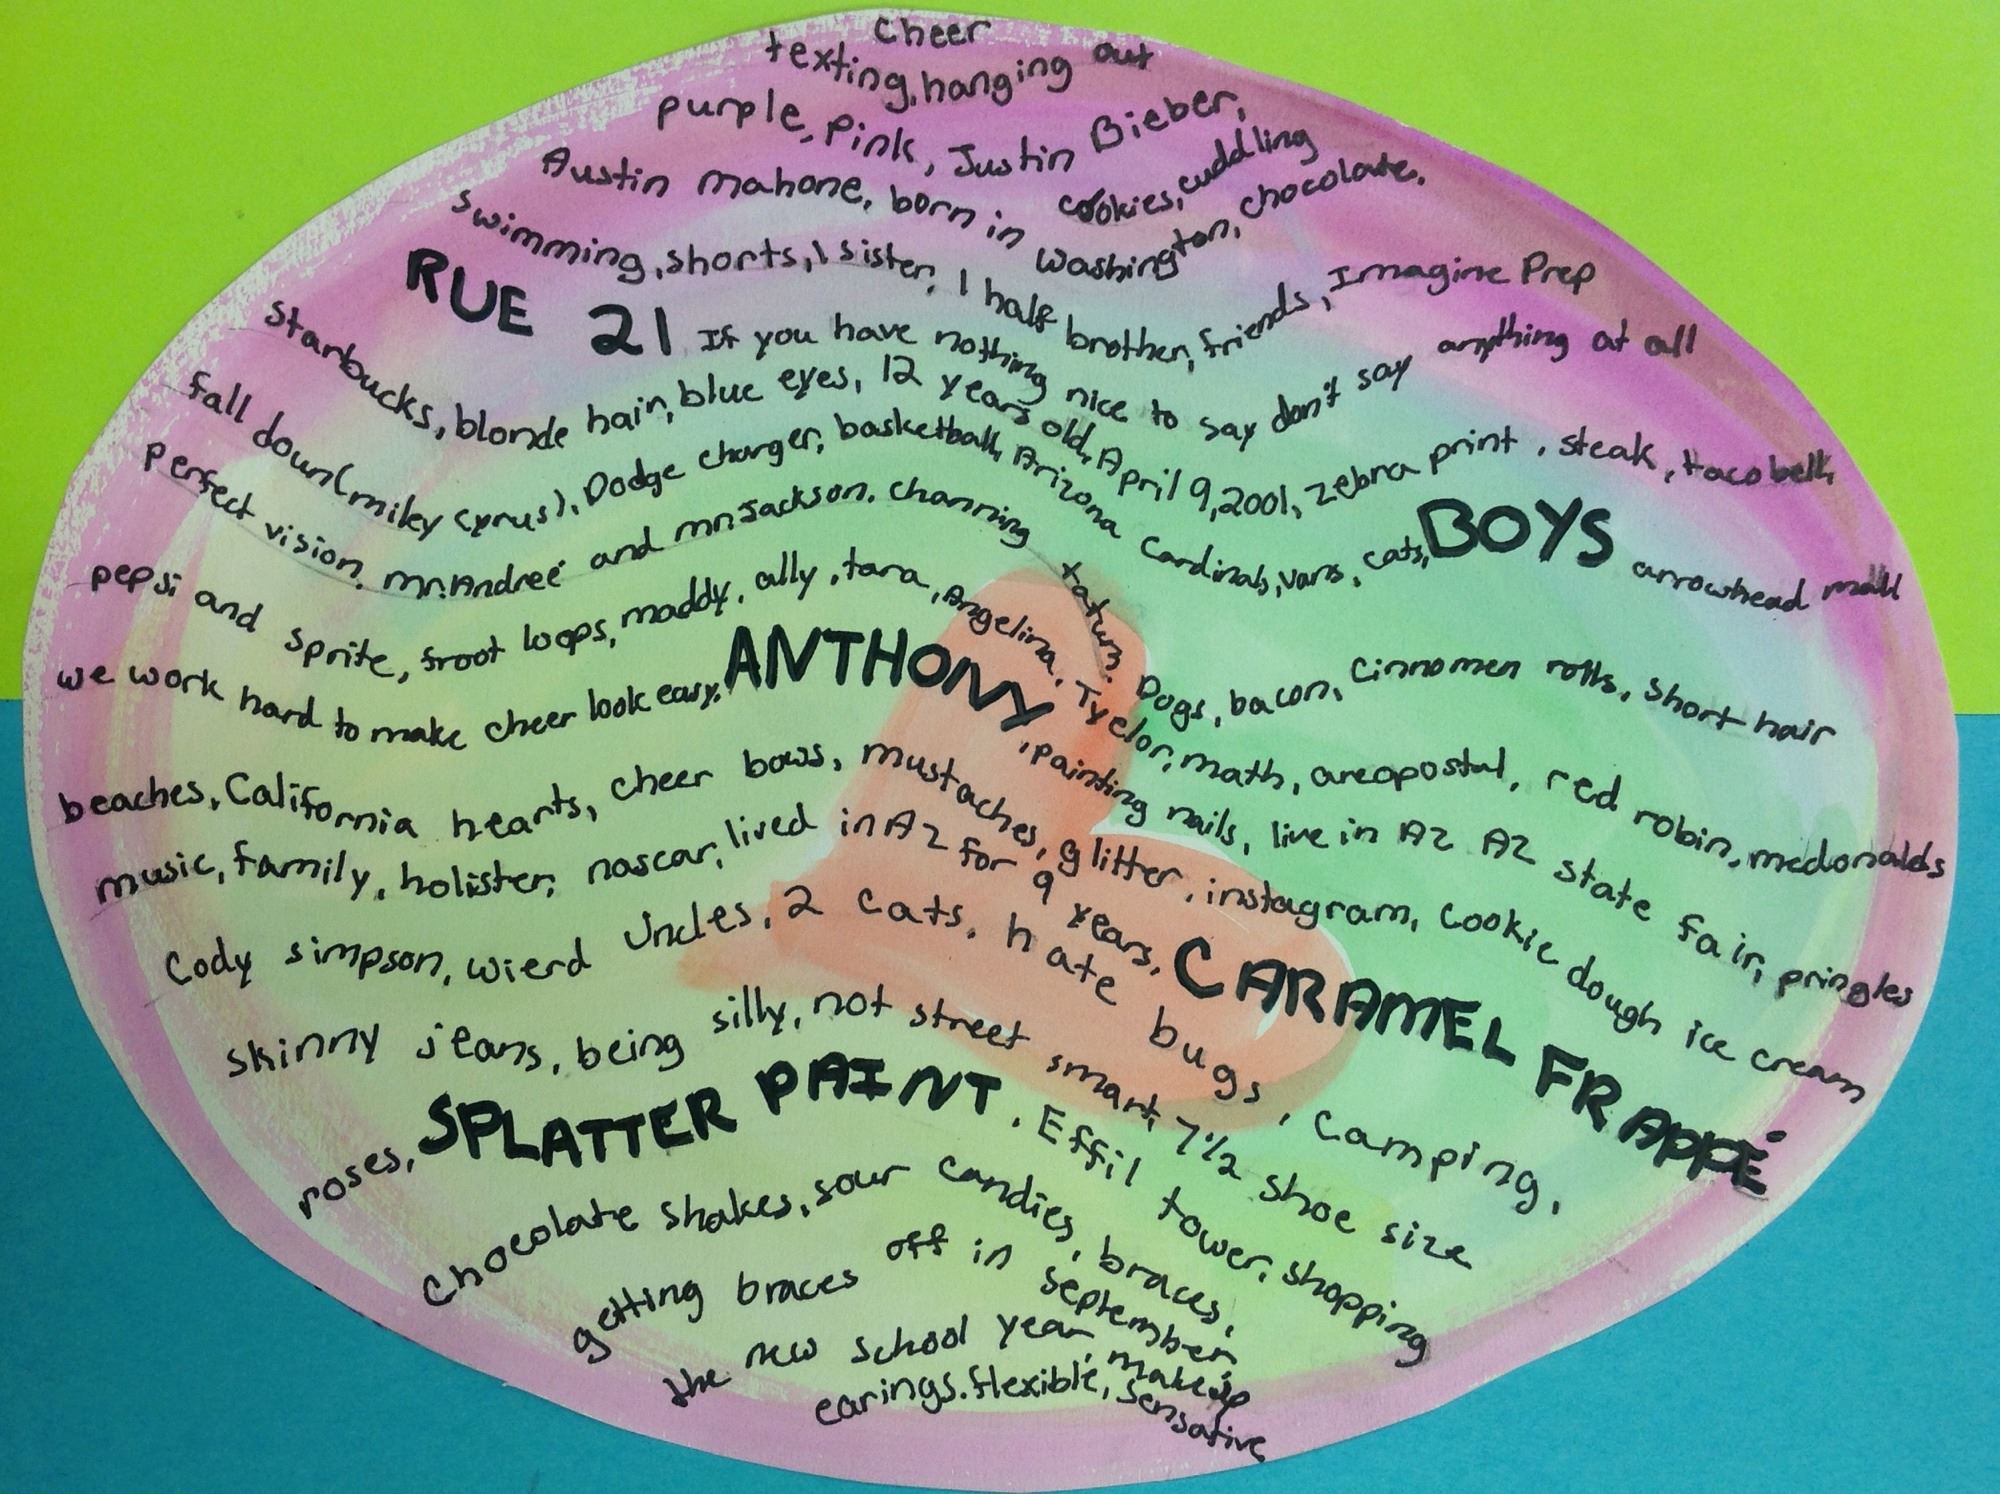 cheer
texting, hanging out
purple, pink, Justin Bieber,
Austin mahone, born in cookies, cuddling
washington, chocolate,
swimming, shorts, 1 sister, 1 half brother, friends, Imagine Prep
RUE 21 If you have nothing nice to say don't say anything at all
starbucks, blonde hair, blue eyes, 12 years old, April 9, 2001, zebra print, steak, taco bell,
fall down (miley cyrus), Dodge charger, basketball, Arizona Cardinals, vans, cats, BOYS arrowhead mall
perfect vision, mr. Andreé and mr. Jackson. channing tatum. Dogs, bacon, cinnomen rolls, short hair
pepsi and sprite, froot loops, maddy, ally, tara, Angelina, Tyelor, math, areapostal, red robin, mcdonalds
we work hard to make cheer look easy, ANTHONY, painting nails, live in AZ AZ state fair, pringles
beaches, California hearts, cheer bows, mustaches, glitter, instagram, cookie dough ice cream
music, family, holister, nascar, lived in AZ for 9 years, CARAMEL FRAPPÉ
Cody simpson, wierd uncles, 2 cats, hate bugs, camping,
skinny jeans, being silly, not street smart, 7 1/2 shoe size
roses, SPLATTER PAINT, Effil tower, shopping
chocolate shakes, sour candies, braces,
getting braces off in september,
the new school year, makeup
earings. flexible, sensative